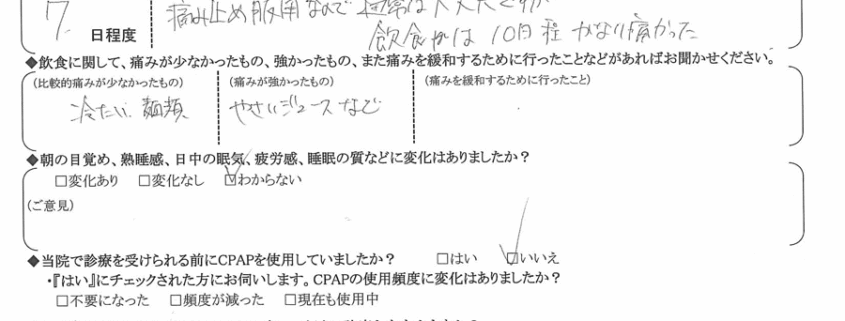 7 日程度
痛み止め服用なので通常は大丈夫ですが
飲食やは10日程かなり痛かった
◆飲食に関して、痛みが少なかったもの、強かったもの、また痛みを緩和するために行ったことなどがあればお聞かせください。
(比較的痛みが少なかったもの) (痛みが強かったもの) (痛みを緩和するために行ったこと)
冷たい麺類 やさいジュースなど
◆朝の目覚め、熟睡感、日中の眠気、疲労感、睡眠の質などに変化はありましたか?
□変化あり □変化なし ☑わからない
(ご意見)
◆当院で診療を受けられる前にCPAPを使用していましたか? □はい ☑いいえ
・『はい』にチェックされた方にお伺いします。CPAPの使用頻度に変化はありましたか?
□不要になった □頻度が減った □現在も使用中